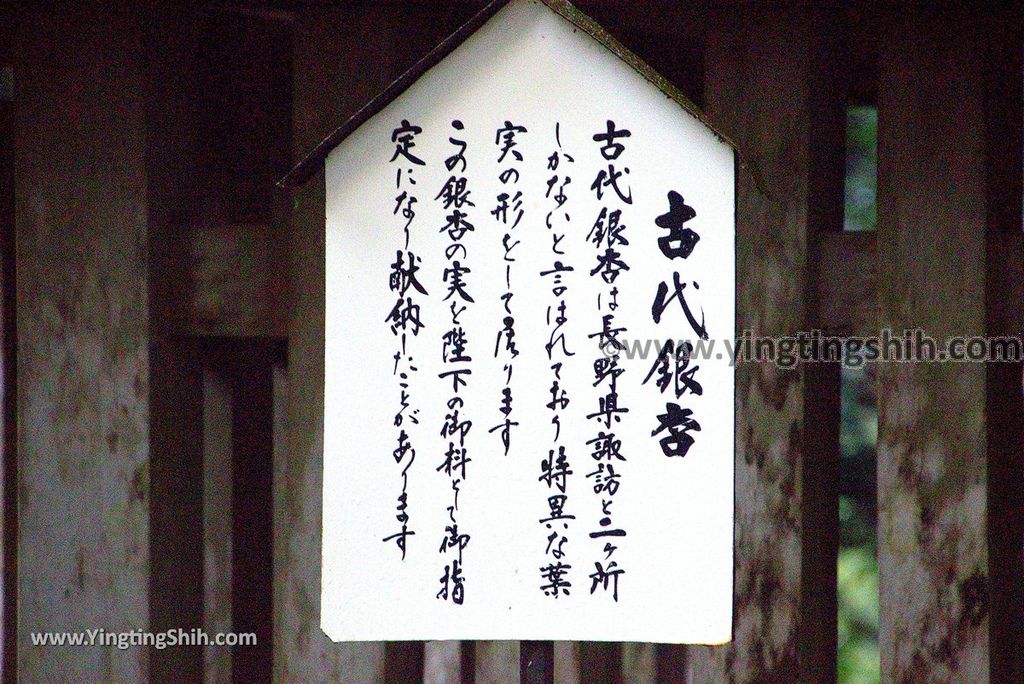 古代銀杏
古代銀杏は長野県諏訪と二ヶ所
しかないと言はれており特異な葉
実の形をして居ります
この銀杏の実を陛下の御料として御指
定になり献納したことがあります
©www.yingtingshih.com
www.YingtingShih.com